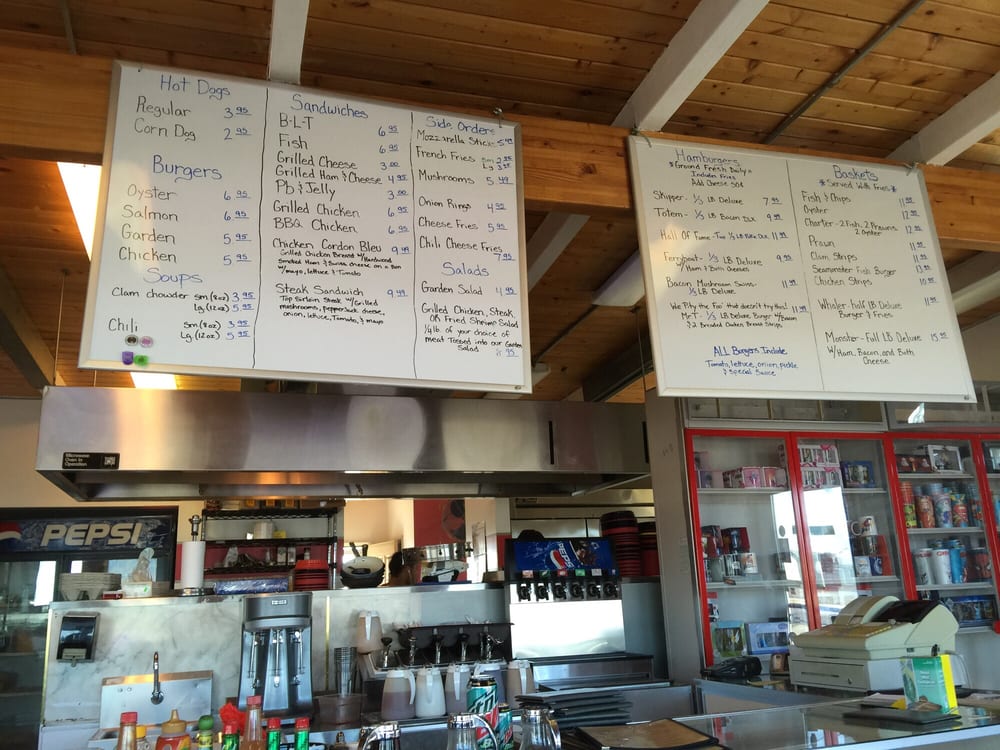 Hot Dogs
Regular 3.95
Corn Dog 2.95
Burgers
Oyster 6.95
Salmon 6.95
Garden 5.95
Chicken 5.95
Soups
Clam chowder sm (8oz) 3.95
Lg (12oz) 5.95
Chili sm (8oz) 3.95
Lg (12oz) 5.95
Sandwiches
B-L-T 6.95
Fish 6.95
Grilled Cheese 3.00
Grilled Ham & Cheese 4.95
Pb & Jelly 3.00
Grilled Chicken 6.95
BBQ Chicken 6.95
Chicken Cordon Bleu 9.49
Grilled Chicken Breast w/ Hardwood
Smoked Ham & Swiss cheese on a Bun
w/mayo, lettuce & Tomato
Steak Sandwich 9.49
Top Sirloin Steak w/ Grilled
mushrooms, pepper jack cheese,
onion, lettuce, Tomato, & mayo
Side Orders
Mozzarella Sticks 5.49
French Fries sm 2.95
Lg 3.95
Mushrooms 5.49
Onion Rings 4.95
Cheese Fries 5.95
Chili Cheese Fries
7.95
Salads
Garden Salad 4.95
Grilled Chicken, Steak,
OR Fried Shrimp Salad
1/4 lb. of your choice of
meat Tossed into our Garden
Salad
95
Hamburgers
*Ground Fresh Daily*
Includes Fries
Add Cheese 50¢
Skipper - 1/3 LB Deluxe 7.95
Totem - 1/3 LB Bacon Dlx 9.95
Hall Of Fame - Two 1/3 LB Patties Dlx 11.95
Ferryboat - 1/3 LB Deluxe 9.95
w/Ham & Both Cheeses
Bacon Mushroom Swiss - 11.95
1/3 LB Deluxe
"We Pity the Foo' that doesn't try this!
Mr T - 1/3 LB Deluxe Burger w/Bacon 11.95
& 2 Breaded Chicken Breast Strips
ALL Burgers Include
Tomato, lettuce, onion, pickle
& Special Sauce
Baskets
*Served With Fries*
Fish & Chips 11.95
Oyster 12.95
Charter - 2 Fish, 2 Prawns 12.95
2 Oyster
Prawn 11.95
Clam Strips 11.95
Seamonster Fish Burger 13.95
Chicken Strips 10.95
Whaler - half LB Deluxe 11.95
Burger & Fries
Monster - Full LB Deluxe 15.95
W/Ham, Bacon, and Both
Cheese
Microwave
Oven In
Operation
PEPSI
PEPSI